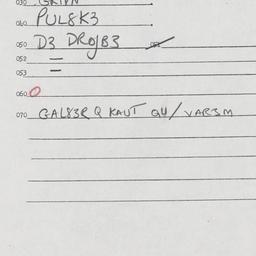 040 PUL8K3
050 D3 DROJB3
052 =
053 =
060 O
070 GAL83R Q KAUT QU/VAR3M